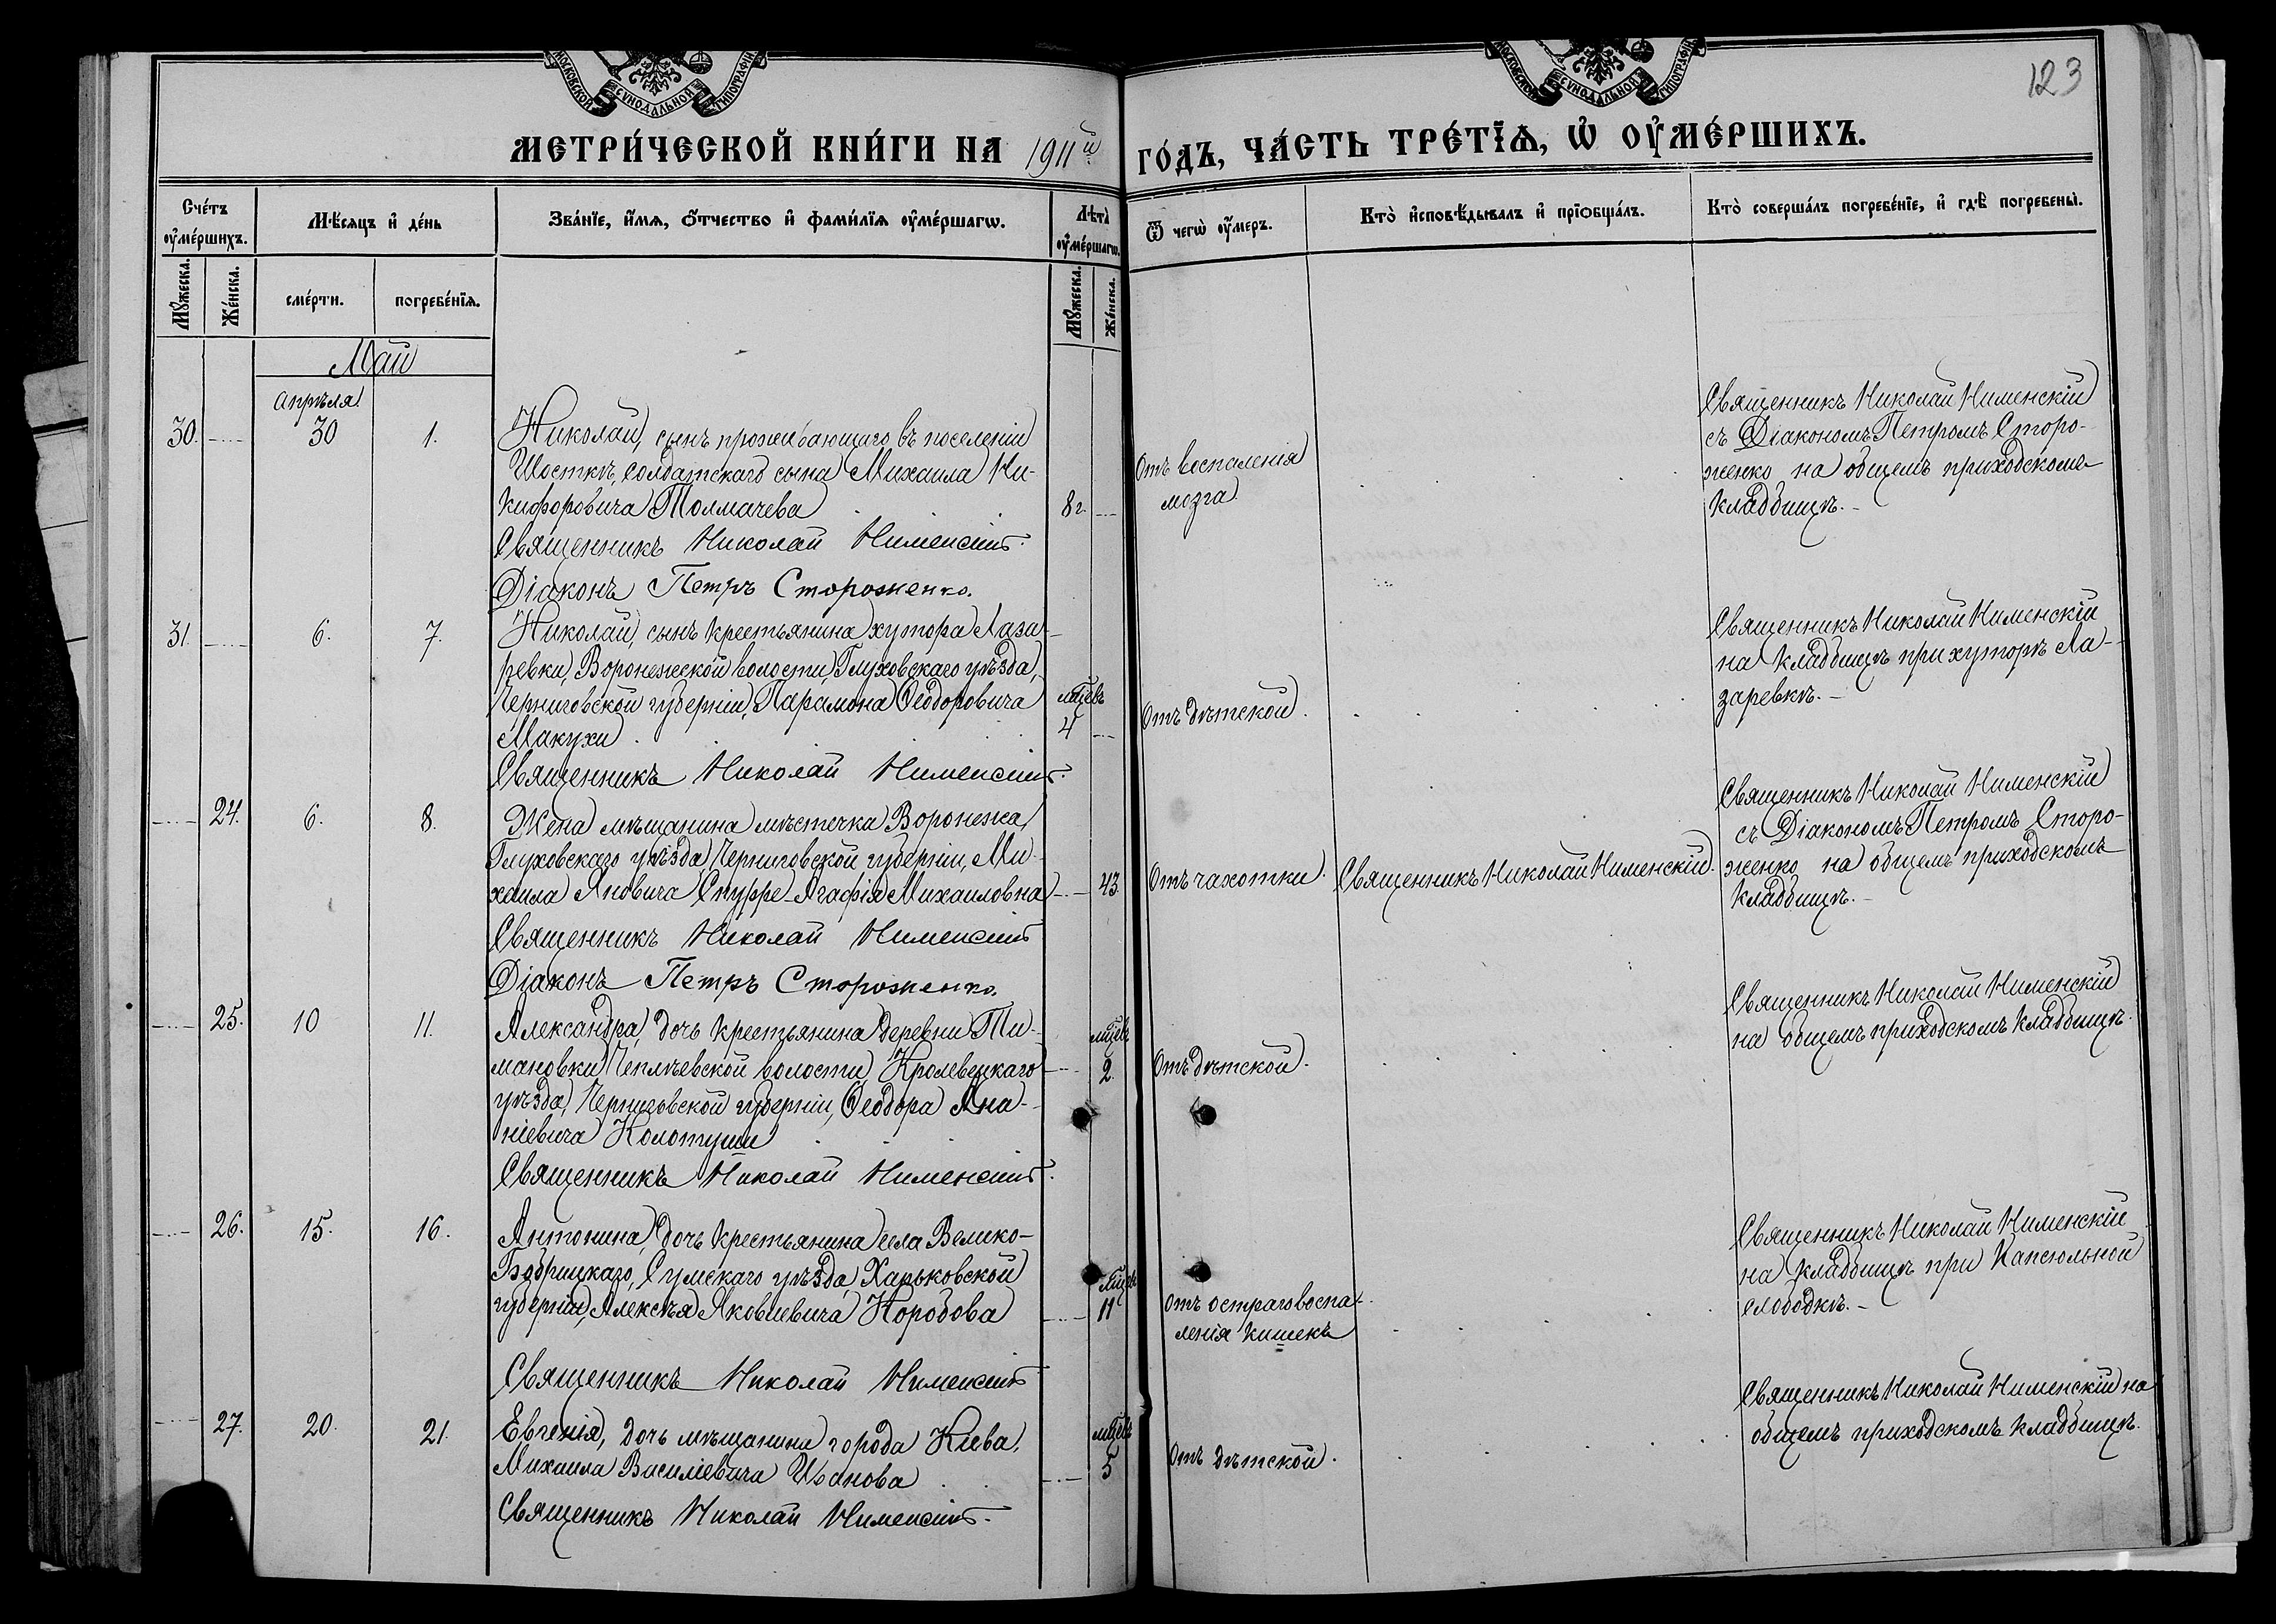 МОСКОВСКОЙ СѴНОДАЛЬНОЙ ТИПОГРАФІИ
МОСКОВСКОЙ СѴНОДАЛЬНОЙ ТИПОГРАФІИ
123
МЕТРИ́ЧЕСКОЙ КНИ́ГИ НА 1911й
ГО́ДЪ, ЧА́СТЬ ТРЕ́ТЇѦ, Ѡ҆ ОУ҆МЕ́РШИХЪ.
Сче́тъ
оу҆ме́ршихъ.
Мѣ́сяцъ и҆ де́нь
Зва́нїе, и҆́мя, ѻ҆́тчество и҆ фами́лїя оу҆ме́ршагѡ.
Лѣта̀
оу҆ме́ршагѡ.
Ѿ чегѡ̀ оу҆́меръ.
Кто̀ и҆сповѣ́дывалъ и҆ прїобща́лъ.
Кто̀ соверша́лъ погребе́нїе, и҆ гдѣ̀ погребены̀.
Мꙋ́жеска.
Же́нска.
сме́рти.
погребе́нїя.
Мꙋ́жеска.
Же́нска.
Май
Апрѣля
30. 30 1. Николай, сынъ проживающаго въ поселеніи
Шосткѣ, солдатскаго сына Михаила Ни-
кифоровича Толмачева 8 г.
Священникъ Николай Нименскій.
Діаконъ Петръ Стороженко.
Отъ воспаленія
мозга
Священникъ Николай Нименскій
съ Діакономъ Петромъ Сторо-
женко на общемъ приходскомъ
кладбищѣ.-
31 6. 7. Николай, сынъ крестьянина хутора Лаза-
ревки, Воронежской волости, Глуховскаго уѣзда,
Черниговской губерніи, Парамона Ѳеодоровича мѣцевъ
Макухи 4
Священникъ Николай Нименскій.
Отъ дѣтской.
Священникъ Николай Нименскій
на кладбищѣ при хуторѣ Ла-
заревкѣ.-
24. 6. 8. Жена мѣщанина мѣстечка Воронежа,
Глуховскаго уѣзда, Черниговской губерніи, Ми-
хаила Яновича Агафія Михаиловна 43
Священникъ Николай Нименскій
Діаконъ Петръ Стороженко.
Отъ чахотки. Священникъ Николай Нименскій.
Священникъ Николай Нименскій
съ Діакономъ Петромъ Сторо-
женко на общемъ приходскомъ
кладбищѣ.-
25. 10 11. Александра, дочь крестьянина деревни Ти- мѣцевъ
мановки, Чеплѣевской волости, Кролевецкаго 2.
уѣзда, Черниговской губерніи, Ѳеодора Ана-
ніевича Колотуши
Священникъ Николай Нименскій.
Отъ дѣтской.
Священникъ Николай Нименскій
на общемъ приходскомъ кладбищѣ.
26. 15. 16. Антонина, дочь крестьянина села Велико-
Бобрицкаго, Сумскаго уѣзда, Харьковской мѣцевъ
губерніи, Алексѣя Яковлевича Коробова 11
Священникъ Николай Нименскій
Отъ остраго воспа-
ленія кишекъ
Священникъ Николай Нименскій
на кладбищѣ при Капсюльной
слободкѣ.-
27. 20. 21. Евгенія, дочь мѣщанина города Кіева, мѣцевъ
Михаила Василіевича Иванова 5
Священникъ Николай Нименскій.
Отъ дѣтской.
Священникъ Николай Нименскій на
общемъ приходскомъ кладбищѣ.